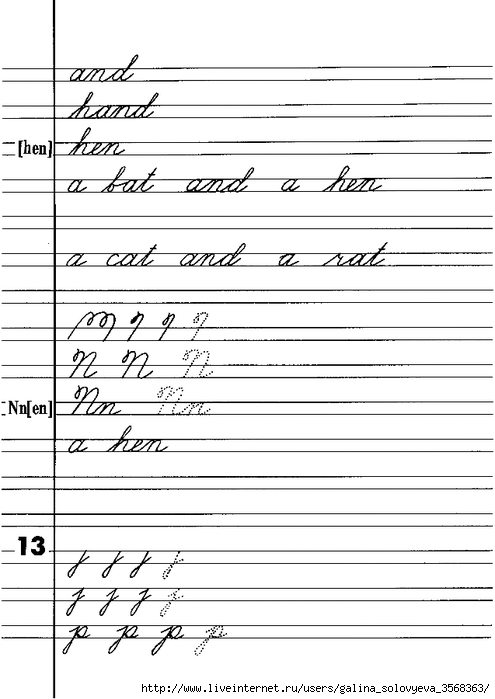 and
hand
[hen] hen
a bat and a hen
a cat and a rat
N N N
Nn[en] Nn Nn
a hen
13
j j j j
p p p p
http://www.liveinternet.ru/users/galina_solovyeva_3568363/